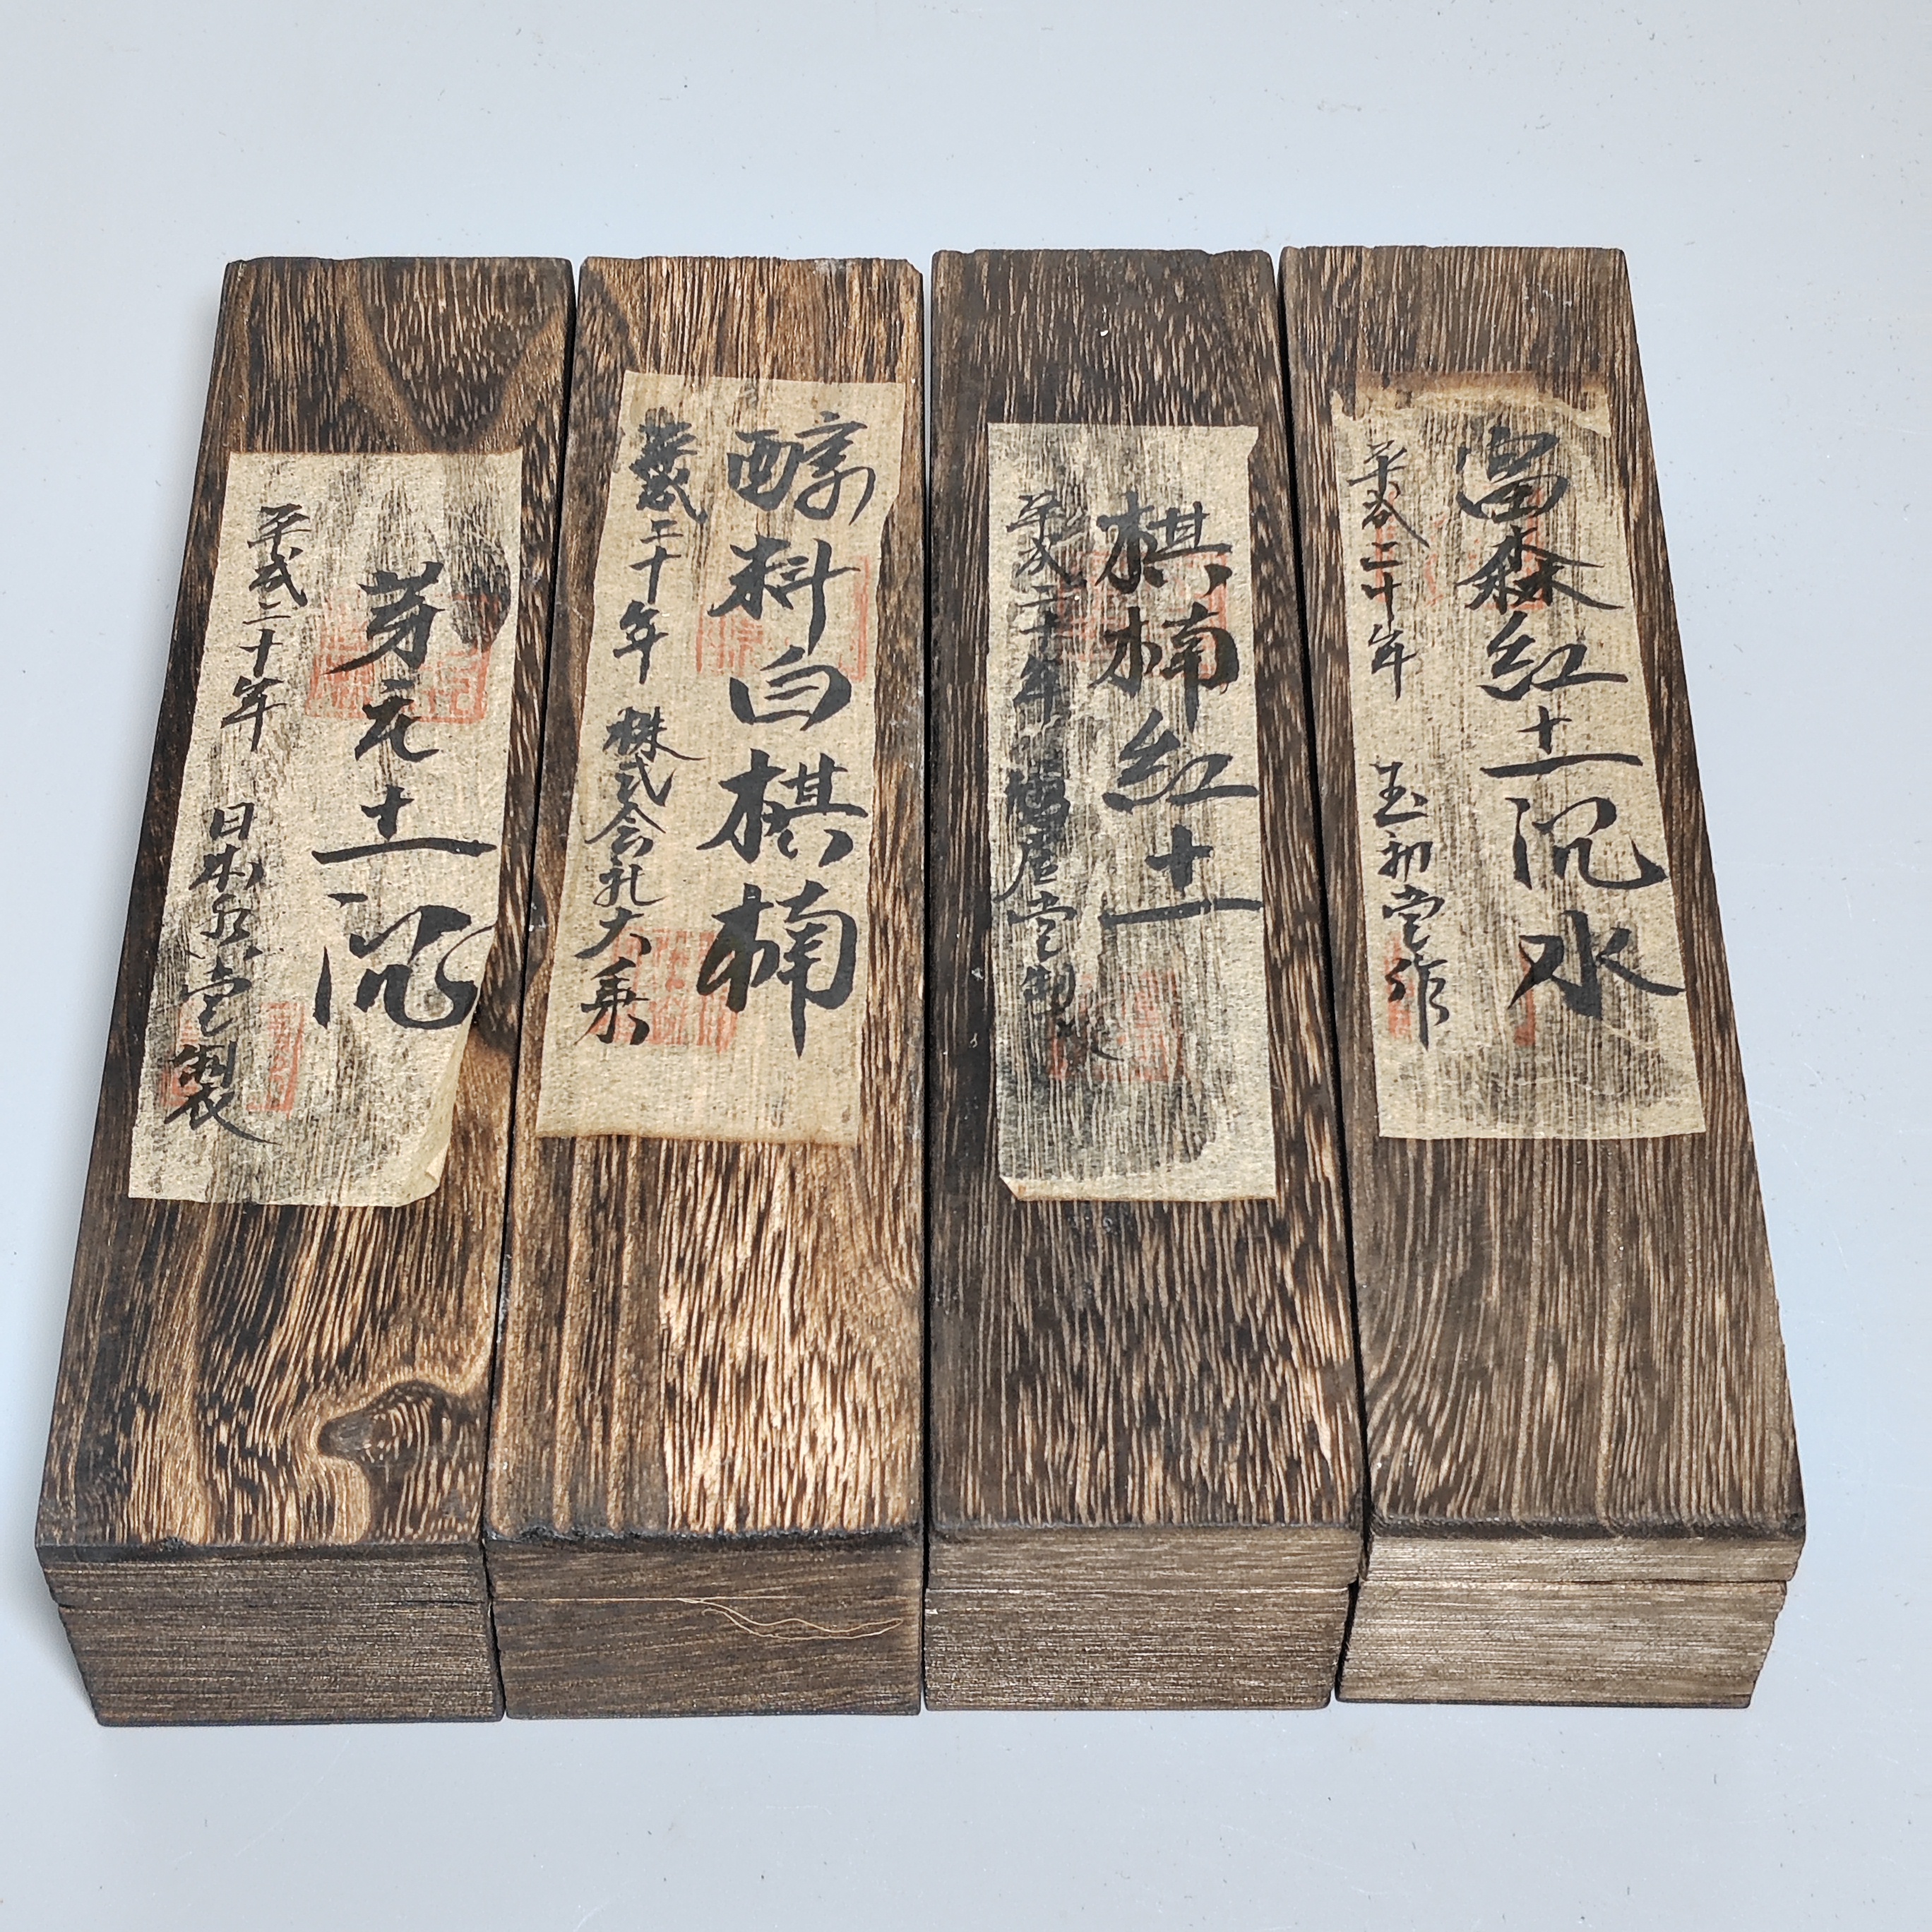 芽元土沉
平成二十年 日本 堂製
醇料白棋楠
平成二十年 株式会社大乗
棋楠红土
平成二十年 堂制
富森红土沉水
平成二十年 玉初堂作